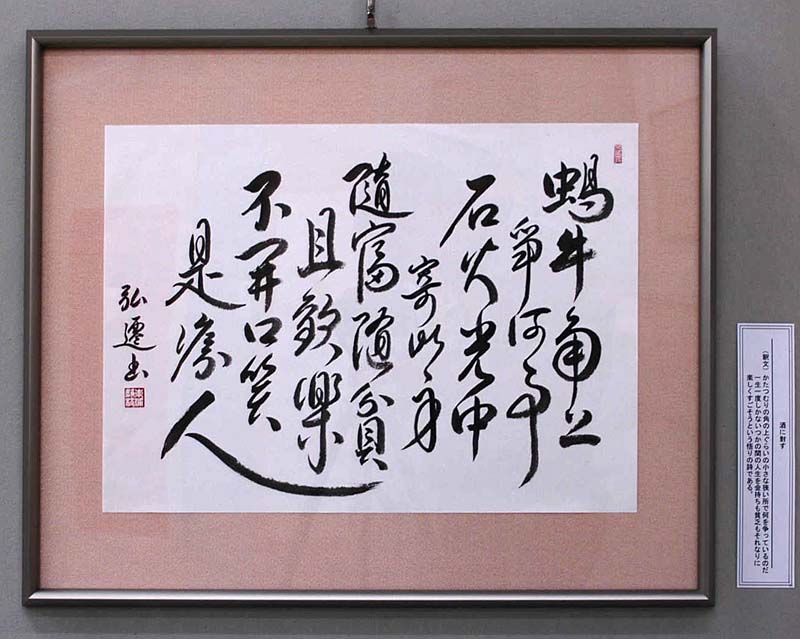 蝸牛角上
爭何事
石火光中
寄此身
隨富隨貧
且歓樂
不開口笑
是癡人
弘遷書
酒に對す
（釈文）かたつむりの角の上ぐらいの小さな狭い所で何を争っているのだ
一生一度しかないつかの間の人生を金持ちも貧乏もそれなりに
楽しくすごそうという悟りの詩である。